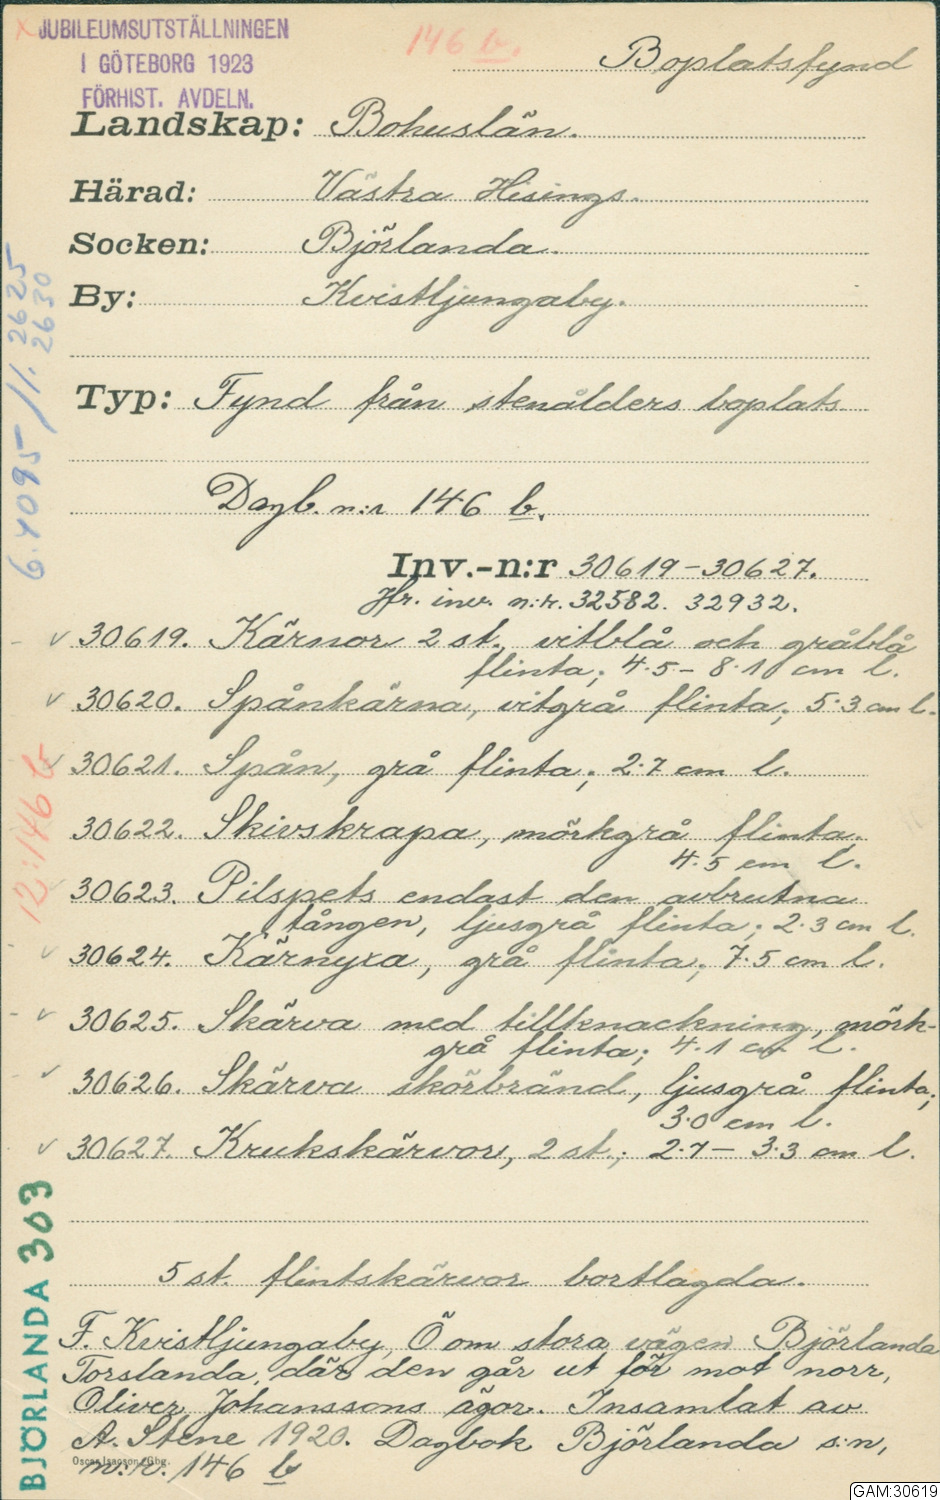 x JUBILEUMSUTSTÄLLNINGEN
I GÖTEBORG 1923
FÖRHIST. AVDELN.
146 b.
Boplatsfynd
Landskap: Bohuslän.
Härad: Västra Hisings.
Socken: Björlanda.
By: Kvistljungaby.
Typ: Fynd från stenålders boplats
Dagb. n:r 146 b.
Inv.-n:r 30619-30627.
Jfr. inv. n:r. 32582. 32932.
- v 30619. Kärnor 2 st. vitblå och gråblå
flinta; 4.5 - 8.10 cm l.
v 30620. Spånkärna, vitgrå flinta; 5.3 cm l.
v 30621. Spån, grå flinta; 2.7 cm l.
30622. Skivskrapa, mörkgrå flinta
4.5 cm l.
v 30623. Pilspets endast den avbrutna
tången, ljusgrå flinta; 2.3 cm l.
- v 30624. Kärnyxa, grå flinta; 7.5 cm l.
- v 30625. Skärva med tillknackning, mörk-
grå flinta; 4.1 cm l.
v 30626. Skärva skörbränd, ljusgrå flinta;
3.0 cm l.
v 30627. Krukskärvor, 2 st.; 2.7 - 3.3 cm l.
5 st. flintskärvor bortlagda.
F. Kvistljungaby, Ö om stora vägen Björlanda
Torslanda, där den går ut för mot norr,
Oliver Johanssons ägor. Insamlat av
A. Stene 1920. Dagbok Björlanda s:n,
n:r. 146 b
Oscar Isacson, Gbg.
12:146 b
BJÖRLANDA 303
GAM:30619